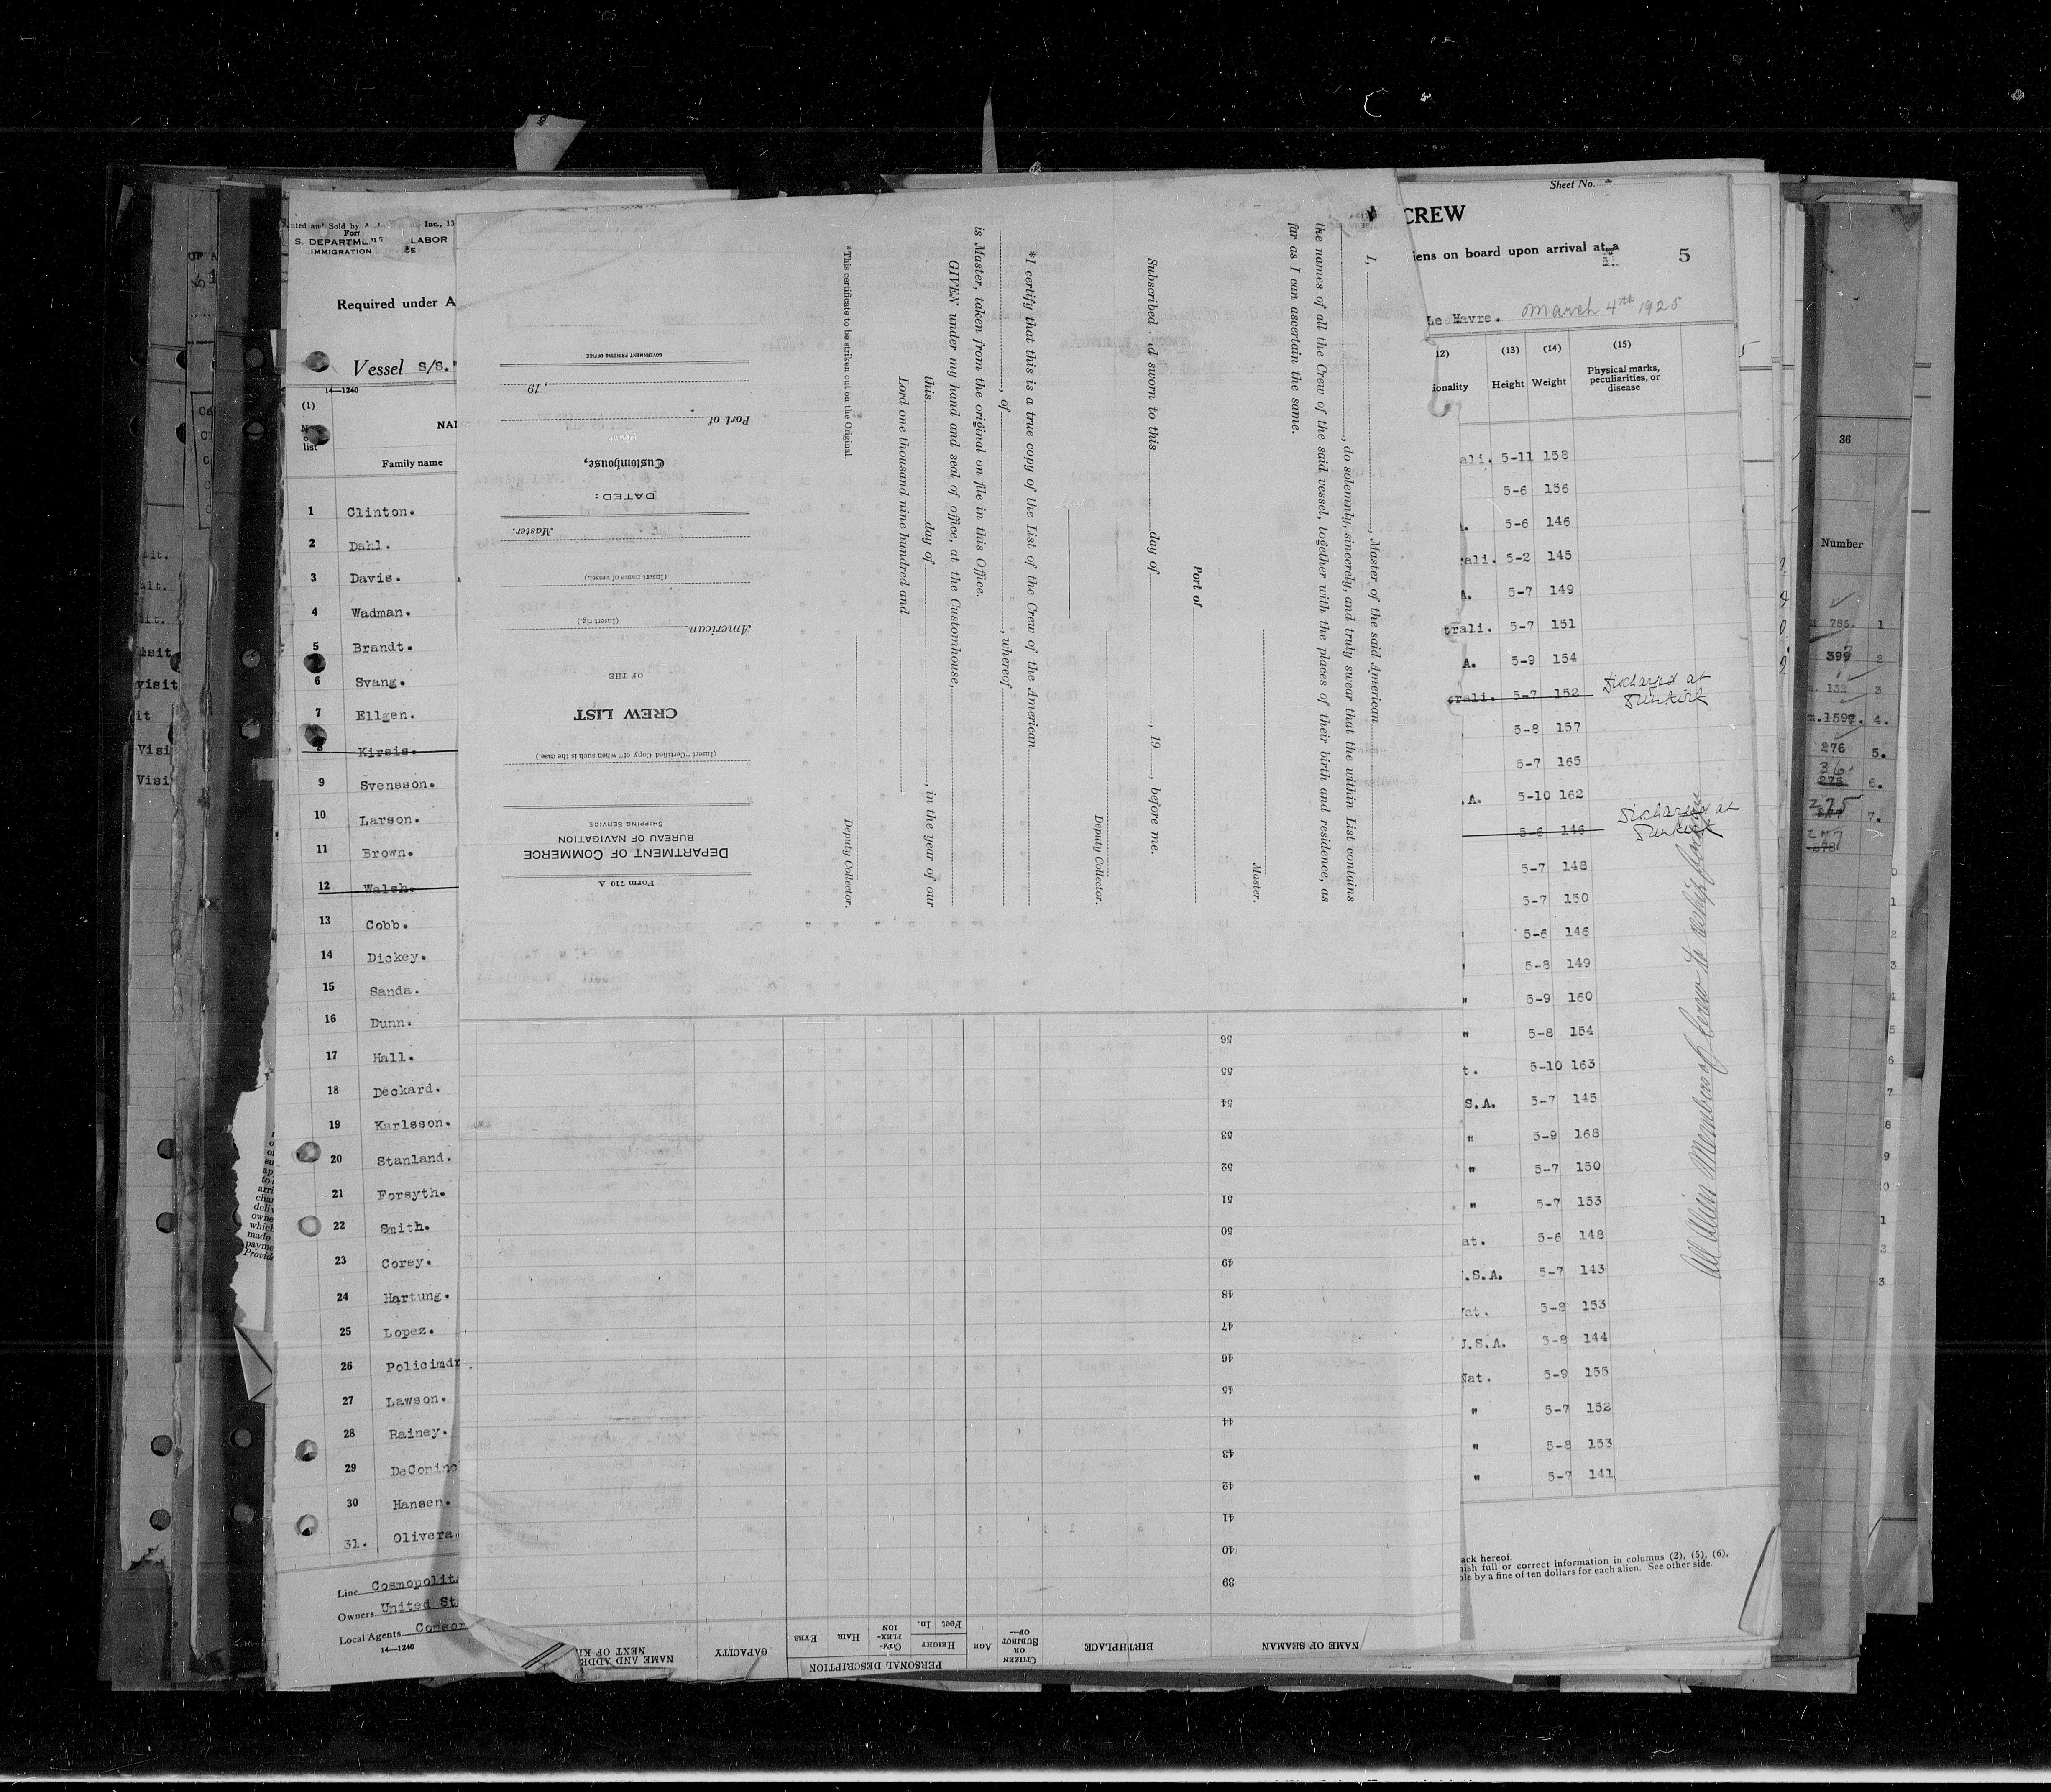 Sheet No.
CREW
iens on board upon arrival at a
5
Le Havre. March 4th 1925
Inc., 13
S. DEPARTME LABOR
IMMIGRATION
Required under A
Vessel S/S."
14—1240
(1)
list
Family name
1 Clinton.
2 Dahl.
3 Davis.
4 Wadman.
5 Brandt.
6 Svang.
7 Ellgen.
8 Kirsis.
9 Svensson.
10 Larson.
11 Brown.
12 Walsh.
13 Cobb.
14 Dickey.
15 Sanda.
16 Dunn.
17 Hall.
18 Deckard.
19 Karlsson.
20 Stanland.
21 Forsyth.
22 Smith.
23 Corey.
24 Hartung.
25 Lopez.
26 Policimdr
27 Lawson.
28 Rainey.
29 DeConinc
30 Hansen.
31. Olivera.
Line Cosmopolit
Owners United St
Local Agents Consor
14—1240
Form 719 A
DEPARTMENT OF COMMERCE
BUREAU OF NAVIGATION
SHIPPING SERVICE
(Insert "Certified Copy of" when such is the case.)
CREW LIST
OF THE
(Insert rig.)
American
(Insert name of vessel.)
Master.
DATED:
Customhouse,
Port of
, 19
GOVERNMENT PRINTING OFFICE
I, , Master of the said American
, do solemnly, sincerely, and truly swear that the within List contains
the names of all the Crew of the said vessel, together with the places of their birth and residence, as
far as I can ascertain the same.
Master.
Port of
Subscribed d sworn to this day of , 19 , before me.
Deputy Collector.
*I certify that this is a true copy of the List of the Crew of the American
, of , whereof
is Master, taken from the original on file in this Office.
GIVEN under my hand and seal of office, at the Customhouse,
this day of , in the year of our
Lord one thousand nine hundred and
Deputy Collector.
*This certificate to be striken out on the Original.
56
55
54
53
52
51
50
49
48
47
46
45
44
43
42
41
40
39
NAME OF SEAMAN
BIRTHPLACE
CITIZEN OR SUBJECT OF—
AGE
PERSONAL DESCRIPTION
HEIGHT
Feet In.
COM-PLEX-ION
HAIR
EYES
CAPACITY
NAME AND ADDR
NEXT OF KI
12) (13) (14) (15)
ionality Height Weight Physical marks, peculiarities, or disease
ali. 5-11 158
5-6 156
A. 5-6 146
rali. 5-2 145
A. 5-7 149
trali. 5-7 151
A. 5-9 154
trali. 5-7 152 Discharged at Dunkirk
5-8 157
5-7 165
.A. 5-10 162
5-6 146 Discharged at Dunkirk
5-7 148
5-7 150
5-6 146
5-8 149
" 5-9 160
" 5-8 154
t. 5-10 163
S.A. 5-7 145
" 5-9 168
" 5-7 150
" 5-7 153
at. 5-6 148
.S.A. 5-7 143
nt. 5-8 153
U.S.A. 5-8 144
Nat. 5-9 155
" 5-7 152
" 5-8 153
" 5-7 141
All Alien Members of Crew to
ack hereof.
nish full or correct information in columns (2), (5), (6),
ble by a fine of ten dollars for each alien. See other side.
36
Number
786. 1
399 2
132 3
m.1597. 4.
276 5.
36
275 6.
275
7.
277
visit
it
Visi
Visi